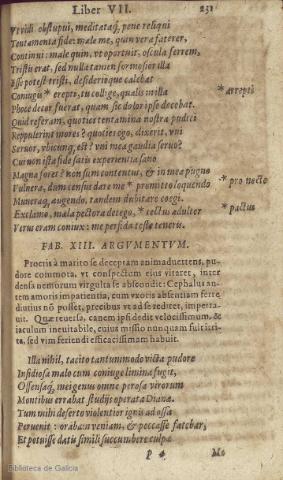 Liber VII. 231
Vt vidi obstupui, meditataq́; pene reliqui
Tentamenta fide: male me, quin vera faterer,
Continui: male quin, vt oportuit, oscula ferrem,
Tristis erat, sed nulla tamen formosior illa
Esse potest tristi, desiderioque calebat
Coniugis * erepti, tu collige, qualis in illa * arrepti
Phoce decor fuerat, quam sic dolor ipse decebat.
Quid referam, quoties tentamina nostra pudici
Reppulerint mores? quoties ego, dixerit, vni
Seruor, vbicunq́; est? vni mea gaudia seruo?
Cui non ista fide satis experientia sano
Magna foret? non sum contentus, & in mea pugno
Vulnera, dum census dare me * promitto loquendo * pro nocte
Muneraq́, augendo, tandem dubitare coegi.
Exclamo, mala pectora detego, * tectus adulter * pactus
Verus eram coniux: me perfida teste teneris.
FAB. XIII. ARGVMENTVM.
Procris à marito se deceptam animaduertens, pu-
dore commota, vt conspectum eius vitaret, inter
densa nemorum virgulta se abscondit: Cephalus au-
tem amoris impatientia, cum vxoris absentiam ferre
diutius nõ posset, precibus vt ad se rediret, impetra-
uit. Quæ reuersa, canem ipsi dedit velocissimum, &
iaculum ineuitabile, cuius missio nunquam fuit irri-
ta, sed vim feriendi efficacissimam habuit.
Illa nihil, tacito tantummodo victa pudore
Insidiosa malo cum coniuge limina fugit,
Offensaq́, mei genus omne perosa virorum
Montibus errabat studijs operata Dianæ.
Tum mihi deserto violentior ignis ad ossa
Peruenit: orabam veniam, & peccasse fatebar,
Et potuisse datis simili succumbere culpæ
P 4 Me
Biblioteca de Galicia